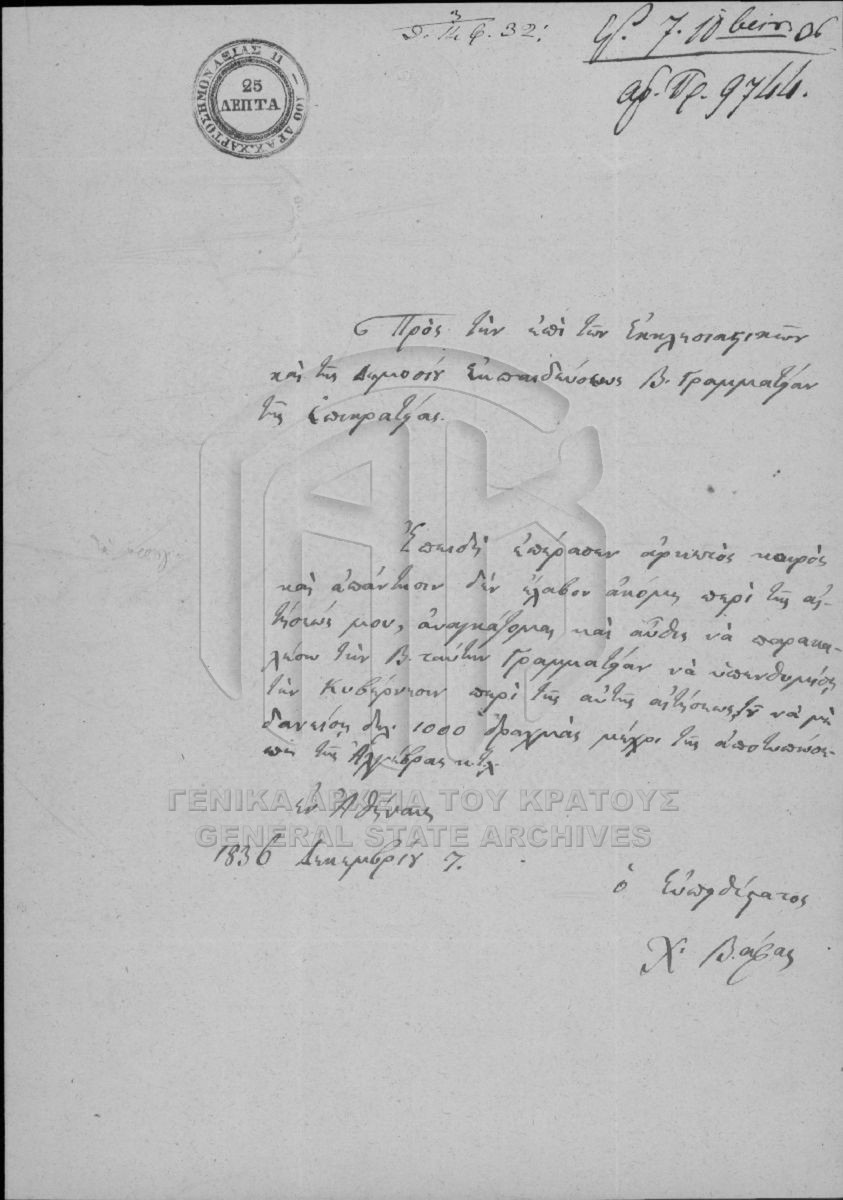 Δ. Π. φ. 32.
7. 10βρίου 36
αρ. Πρ. 9744.
ΧΑΡΤΟΣΗΜΟΝ ΑΞΙΑΣ 11 — 100 ΔΡΑΧ.
25
ΛΕΠΤΑ
Πρὸς τὴν ἐπὶ τῶν Ἐκκλησιαστικῶν
καὶ τῆς Δημοσίου Ἐκπαιδεύσεως Β. Γραμματείαν
τῆς Ἐπικρατείας.
Ἐπειδὴ ἐπέρασεν ἀρκετὸς καιρὸς
καὶ ἀπάντησιν δὲν ἔλαβον ἀκόμη περὶ τῆς αἰ-
τήσεώς μου, ἀναγκάζομαι καὶ αὖθις νὰ παρακα-
λέσω τὴν Β. ταύτην Γραμματείαν νὰ ὑπενθυμίσῃ
τὴν Κυβέρνησιν περὶ τῆς αὐτῆς αἰτήσεως, τοῦ νὰ μὲ
δανείσῃ δηλ. 1000 δραχμὰς μέχρι τῆς ἀποτυπώσε-
ως τῆς Ἀλγέβρας κτλ.
ΓΕΝΙΚΑ ΑΡΧΕΙΑ ΤΟΥ ΚΡΑΤΟΥΣ
GENERAL STATE ARCHIVES
ἐν Ἀθήναις
1836 Δεκεμβρίου 7.
ὁ Εὐπειθέστατος
Χ. Βάφας